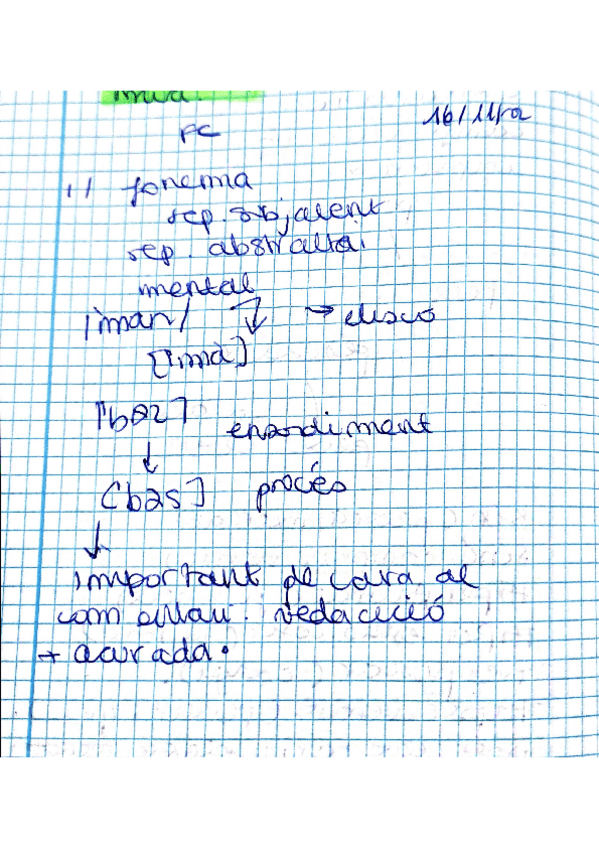 PC
16/11/22
1/ fonema
rep. subjacent
rep. abstracta.
mental
/man/ → elisió
[ˈma]
[ˈbaz] ensordiment
↓
[ˈbas] procés
↓
important de cara al
com redacció
+ acurada.